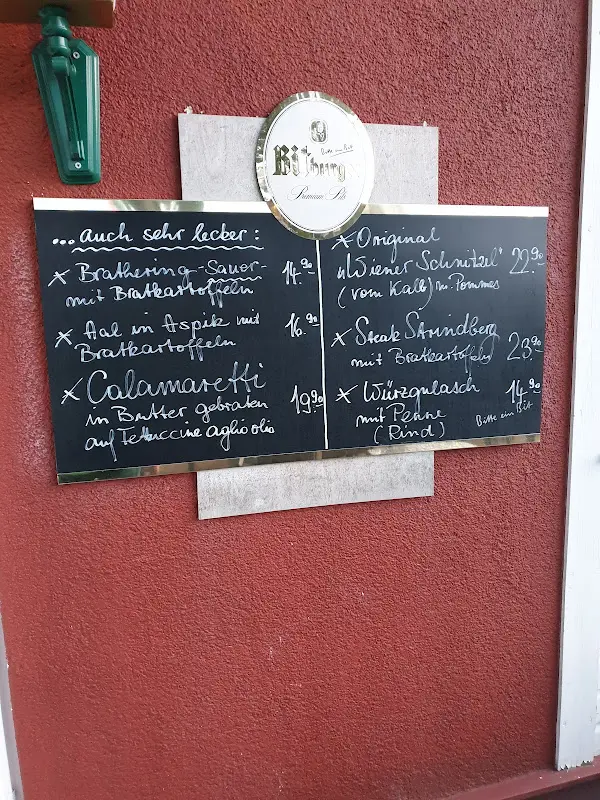 Bitte ein Bit
Bitburger
Premium Pils
... auch sehr lecker:
x Brathering-Sauer- 14.90
mit Bratkartoffeln
x Aal in Aspik mit 16.90
Bratkartoffeln
x Calamaretti
in Butter gebraten 19.90
auf Fettuccine aglio olio
x Original
„Wiener Schnitzel" 22.90
(vom Kalb) m. Pommes
x Steak Strindberg
mit Bratkartoffeln 23.90
x Würzgulasch 14.90
mit Penne
(Rind)
Bitte ein Bit